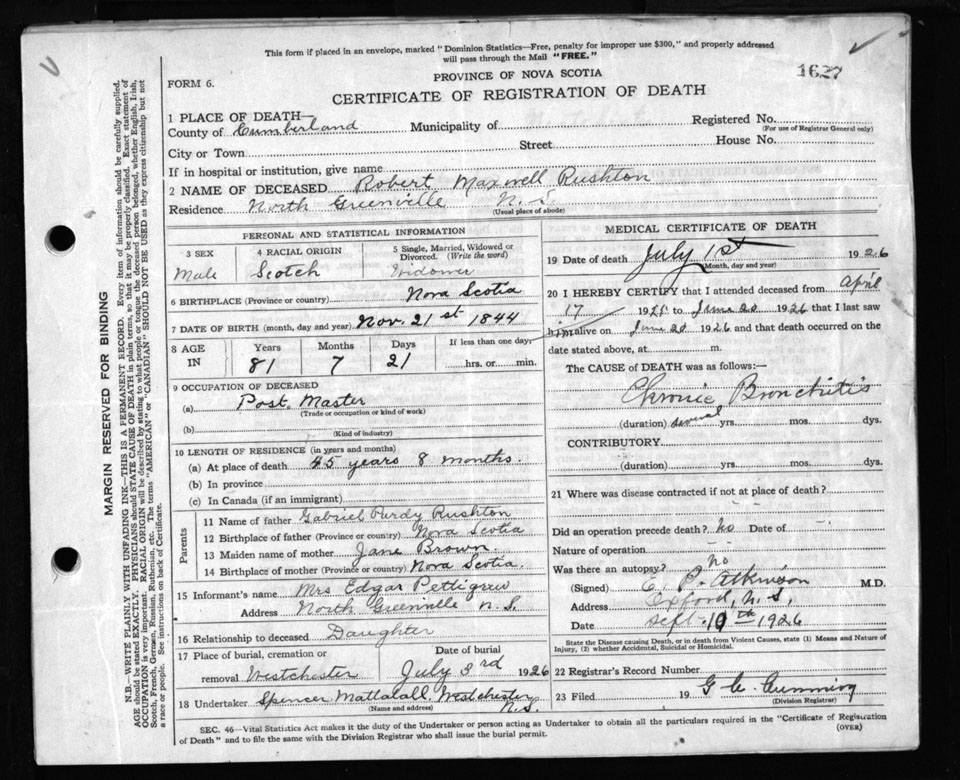 This form if placed in an envelope, marked "Dominion Statistics—Free, penalty for improper use $300," and properly addressed
will pass through the Mail "FREE."
PROVINCE OF NOVA SCOTIA
1627
FORM 6.
CERTIFICATE OF REGISTRATION OF DEATH
1 PLACE OF DEATH—
County of Cumberland Municipality of Registered No.
(For use of Registrar General only)
City or Town Street House No.
If in hospital or institution, give name
2 NAME OF DECEASED Robert Maxwell Rushton
Residence North Greenville N. S.
(Usual place of abode)
PERSONAL AND STATISTICAL INFORMATION
3 SEX 4 RACIAL ORIGIN 5 Single, Married, Widowed or Divorced. (Write the word)
Male Scotch Widower
6 BIRTHPLACE (Province or country) Nova Scotia
7 DATE OF BIRTH (month, day and year) Nov. 21st 1844
8 AGE IN Years Months Days If less than one day,
81 7 21 hrs. or min.
9 OCCUPATION OF DECEASED
(a) Post Master
(Trade or occupation or kind of work)
(b)
(Kind of industry)
10 LENGTH OF RESIDENCE (in years and months)
(a) At place of death 45 years 8 months.
(b) In province
(c) In Canada (if an immigrant)
Parents
11 Name of father Gabriel Purdy Rushton
12 Birthplace of father (Province or country) Nova Scotia
13 Maiden name of mother Jane Brown
14 Birthplace of mother (Province or country) Nova Scotia.
15 Informant's name Mrs Edgar Pettigrew
Address North Greenville N. S.
16 Relationship to deceased Daughter
17 Place of burial, cremation or Date of burial
removal Westchester July 3rd 1926
18 Undertaker Spencer Mattatall Westchester N.S.
(Name and address)
MEDICAL CERTIFICATE OF DEATH
19 Date of death July 1st 1926
(Month, day and year)
20 I HEREBY CERTIFY that I attended deceased from April
17 192 to June 20 1926 that I last saw
him alive on June 20 1926 and that death occurred on the
date stated above, at m.
The CAUSE of DEATH was as follows:—
Chronic Bronchitis
(duration) several yrs. mos. dys.
CONTRIBUTORY
(duration) yrs. mos. dys.
21 Where was disease contracted if not at place of death?
Did an operation precede death? No Date of
Nature of operation
Was there an autopsy? No
(Signed) E. P. Atkinson M.D.
Address Oxford, N.S.
Date Sept. 10th 1926
State the Disease causing Death, or in death from Violent Causes, state (1) Means and Nature of
Injury, (2) whether Accidental, Suicidal or Homicidal.
22 Registrar's Record Number
23 Filed 19 G C Cumming
(Division Registrar)
SEC. 46—Vital Statistics Act makes it the duty of the Undertaker or person acting as Undertaker to obtain all the particulars required in the "Certificate of Registration
of Death" and to file the same with the Division Registrar who shall issue the burial permit.
(OVER)
MARGIN RESERVED FOR BINDING
N.B.—WRITE PLAINLY WITH UNFADING INK—THIS IS A PERMANENT RECORD. Every item of information should be carefully supplied.
AGE should be stated EXACTLY. PHYSICIANS should STATE CAUSE OF DEATH in plain terms, so that it may be properly classified. Exact statement of
OCCUPATION is very important. RACIAL ORIGIN will be described by stating to what people or tongue the deceased person belonged, whether English, Irish,
Scotch, French, German, Russian, Ruthenian, etc. The terms "AMERICAN" or "CANADIAN" SHOULD NOT BE USED as they express citizenship but not
a race or people. See instructions on back of Certificate.